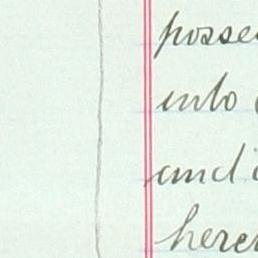 posses
into
and
herei